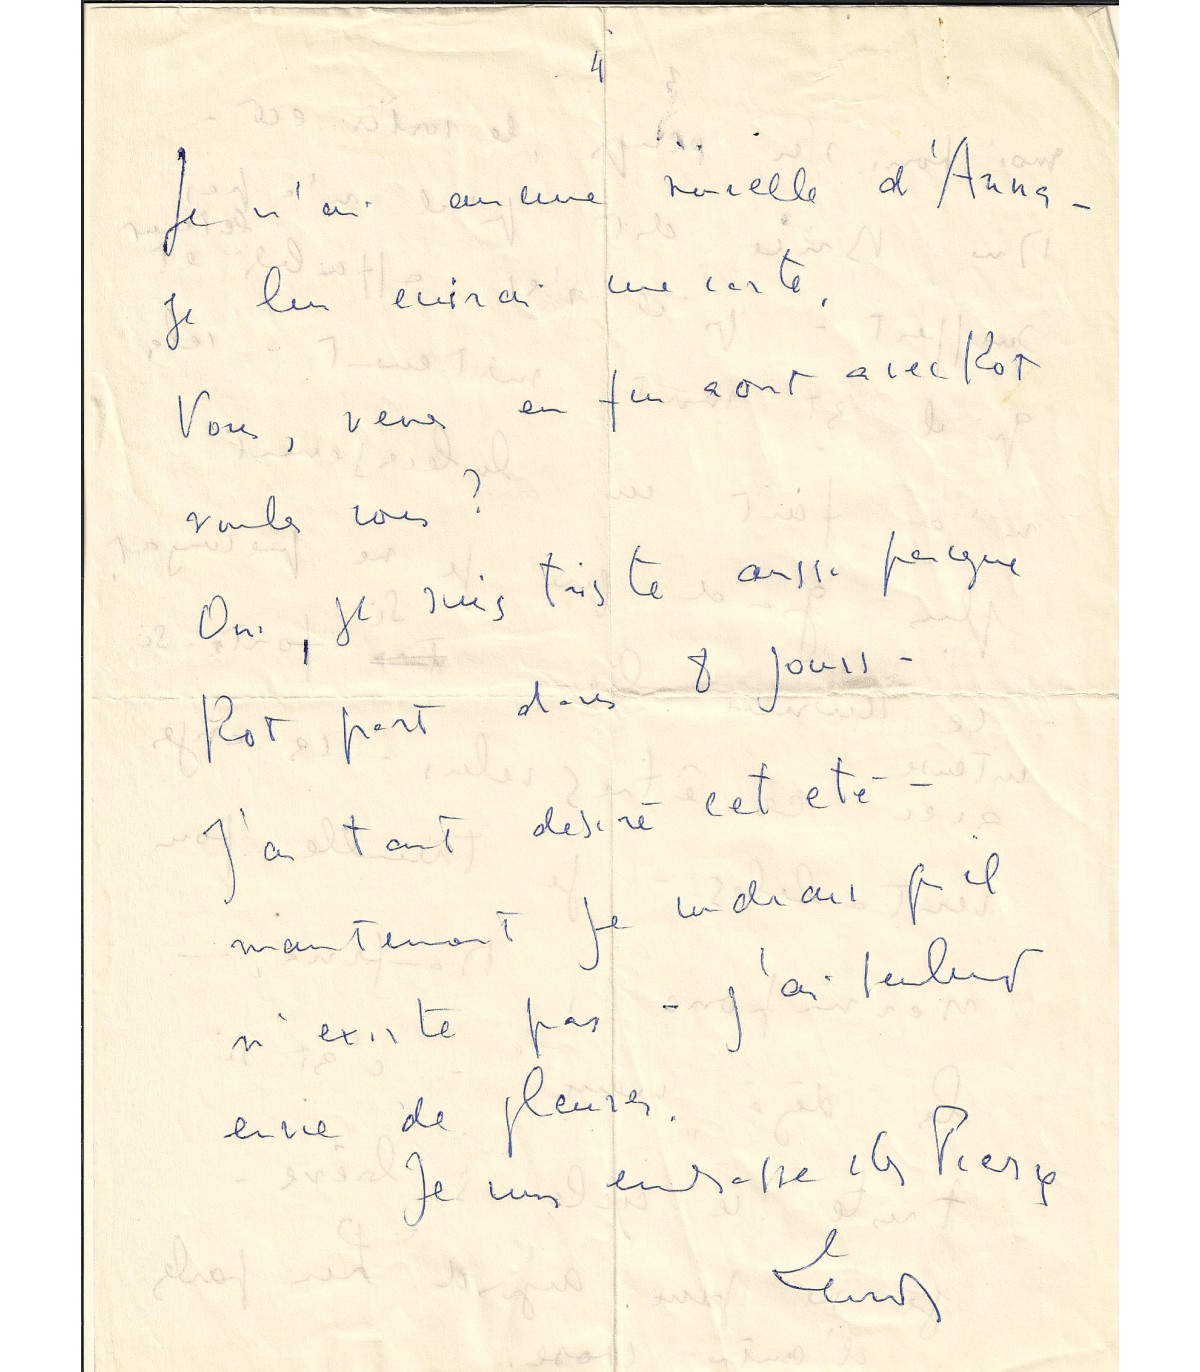 4
Je n'ai aucune nouvelle d'Anna -
je leur enverrai une carte.
Vous, venez en fin aout avec Rot
voulez vous ?
Oui, je suis triste aussi parceque
Rot part dans 8 jours -
J'ai tant desiré cet eté -
maintenant je voudrais qu'il
n'existe pas - j'ai seulement
envie de pleurer.
Je vous embrasse cher Pierre